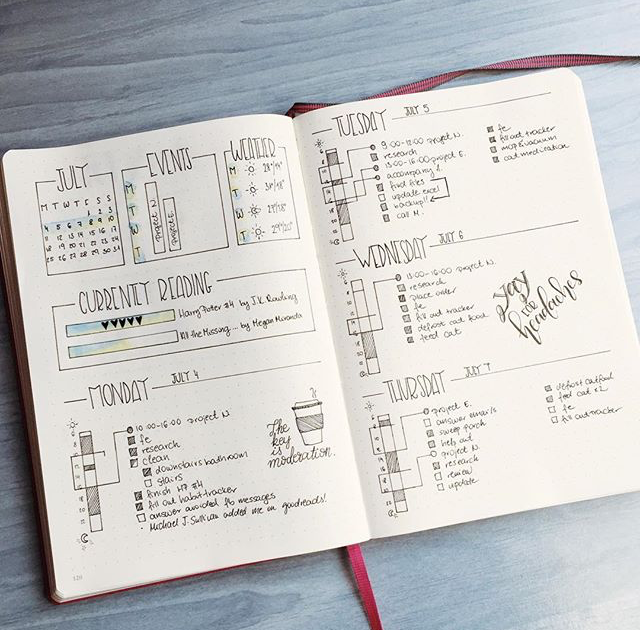 JULY
M T W T F S S
1 2 3
4 5 6 7 8 9 10
11 12 13 14 15 16 17
18 19 20 21 22 23 24
25 26 27 28 29 30 31
EVENTS
M
T
W
T
project N.
project E.
WEATHER
M
T 31°/18°
W 29°/18°
T 29°/20°
CURRENTLY READING
Harry Potter #4 by J.K. Rowling
All the Missing... by Megan Miranda
MONDAY JULY 4
10:00-16:00 project N.
fe
research
clean
downstairs bathroom
stairs
finish HP #4
fill out habit-tracker
answer avoided fb messages
Michael J. Sullivan added me on goodreads!
The
key
is
moderation.
120
TUESDAY JULY 5
9:00-12:00 project N.
research
13:00-16:00 project E.
accompany
find files
update excel
backup!!
call M.
fe
fill out tracker
mop & vacuum
cat medication
WEDNESDAY JULY 6
13:00-16:00 project N.
research
place order
fe
fill out tracker
defrost cat food
feed cat
yay
for
headaches
THURSDAY JULY 7
project E.
answer email/s
sweep porch
help out
project N.
research
review
update
defrost catfood
feed cat x2
fe
fill out tracker